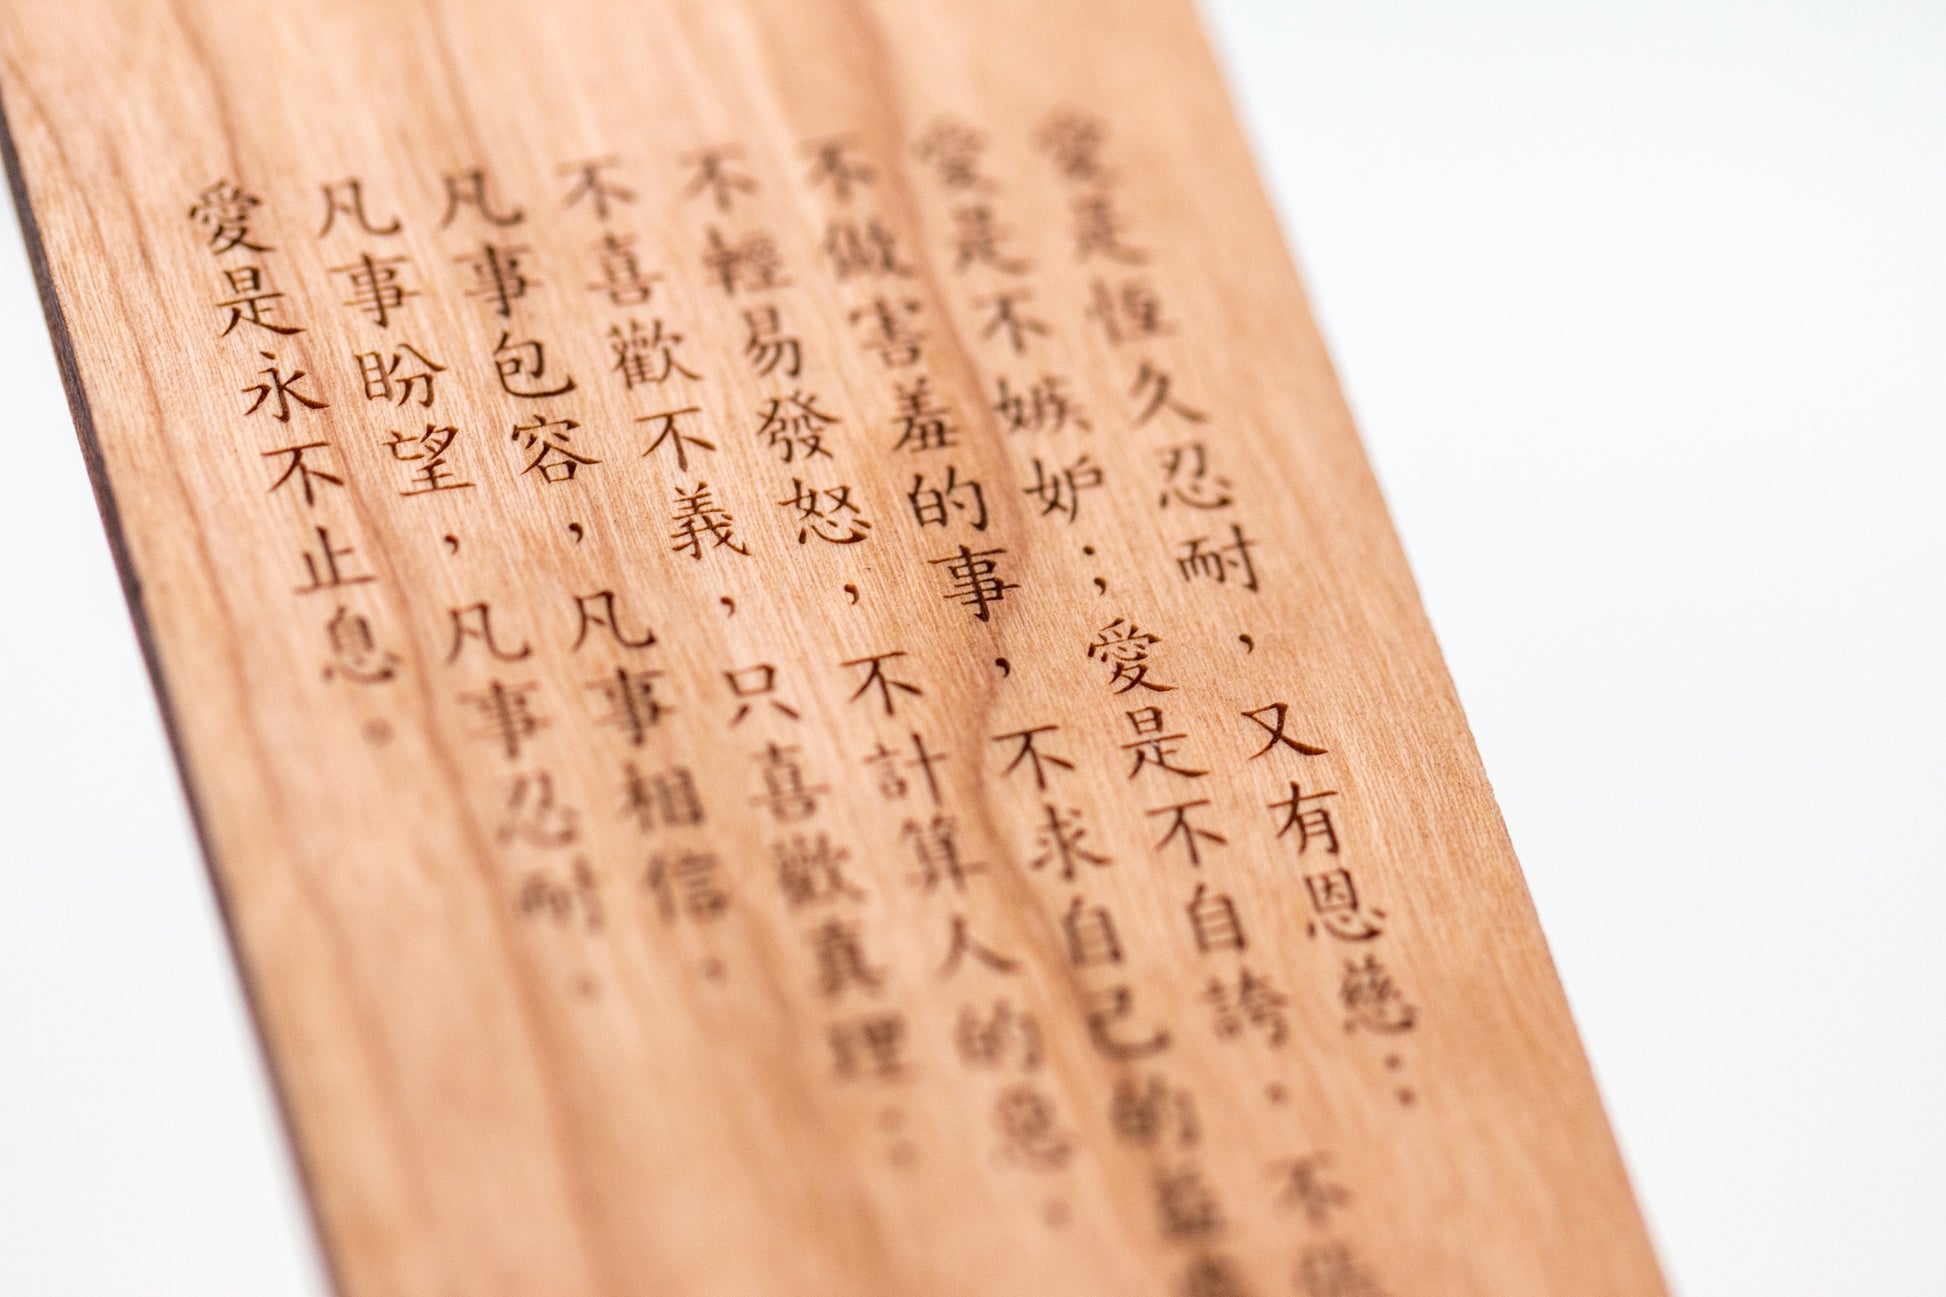 愛是恆久忍耐，又有恩慈：
愛是不嫉妒；愛是不自誇。不
不做害羞的事，不求自己的益
不輕易發怒，不計算人的惡。
不喜歡不義，只喜歡真理。
凡事包容，凡事相信。
凡事盼望，凡事忍耐。
愛是永不止息。